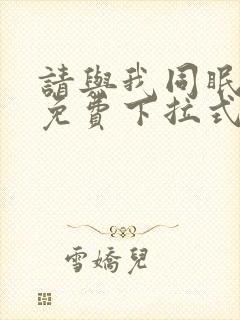 請與我同眠
免費下拉式
雪嬌兒